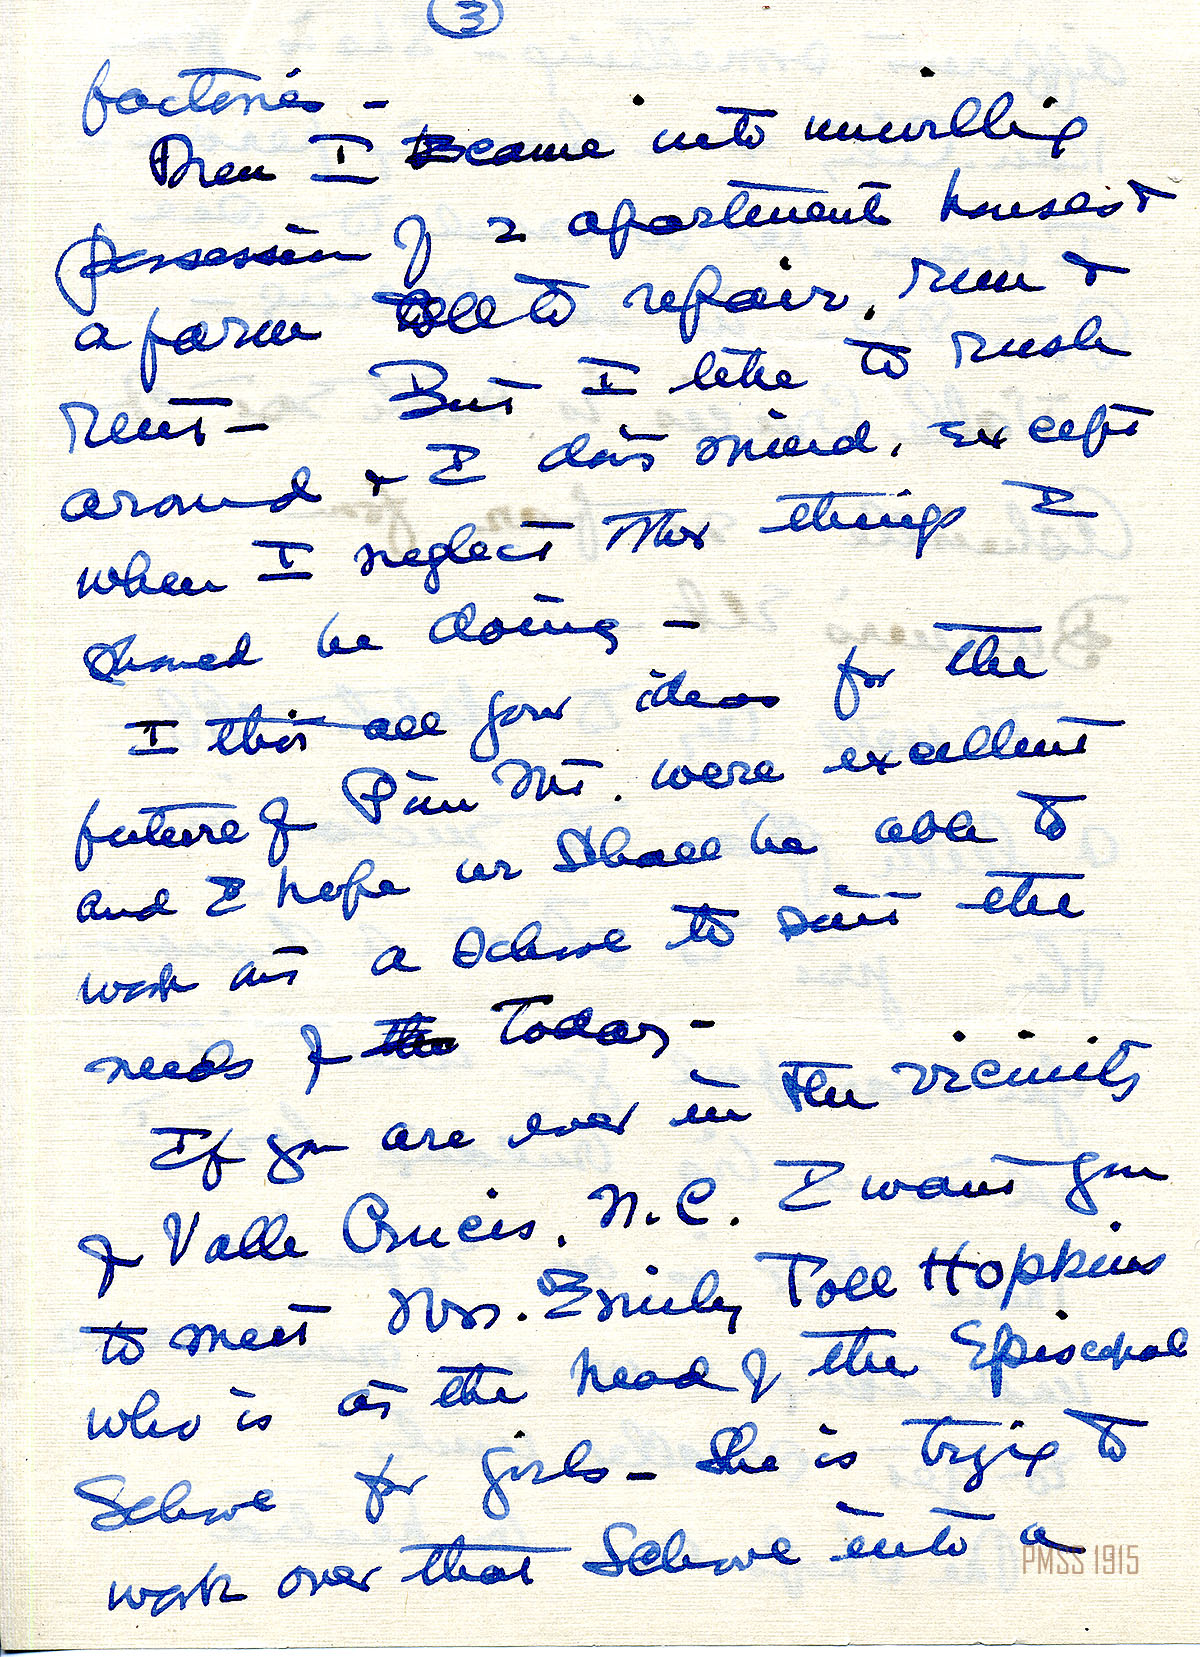 3
factories -
Then I became into unwilling
possession of 2 apartment houses &
a farm all to repair, run &
rent - But I like to rush
around & I don't mind, except
when I neglect other things I
should be doing -
I think all your ideas for the
future of Pine Mt. were excellent
and I hope we shall be able to
work out a school to suit the
needs of the today -
If you are ever in the vicinity
of Valle Crucis, N.C. I want you
to meet Mrs. Emily Toll Hopkins
who is at the head of the Episcopal
School for girls - She is trying to
work over that School into a
PMSS 1915